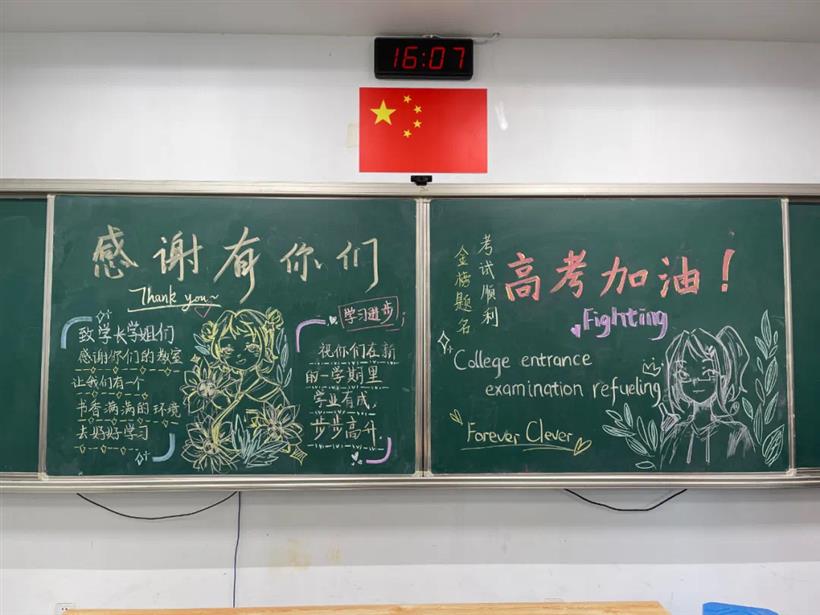 16:07
感谢有你们
Thank you~
致学长学姐们
感谢你们的教室
让我们有一个
书香满满的环境
去好好学习
学习进步
祝你们在新
的一学期里
学业有成,
步步高升
考试顺利
金榜题名
高考加油!
Fighting
College entrance
examination refueling
Forever Clever